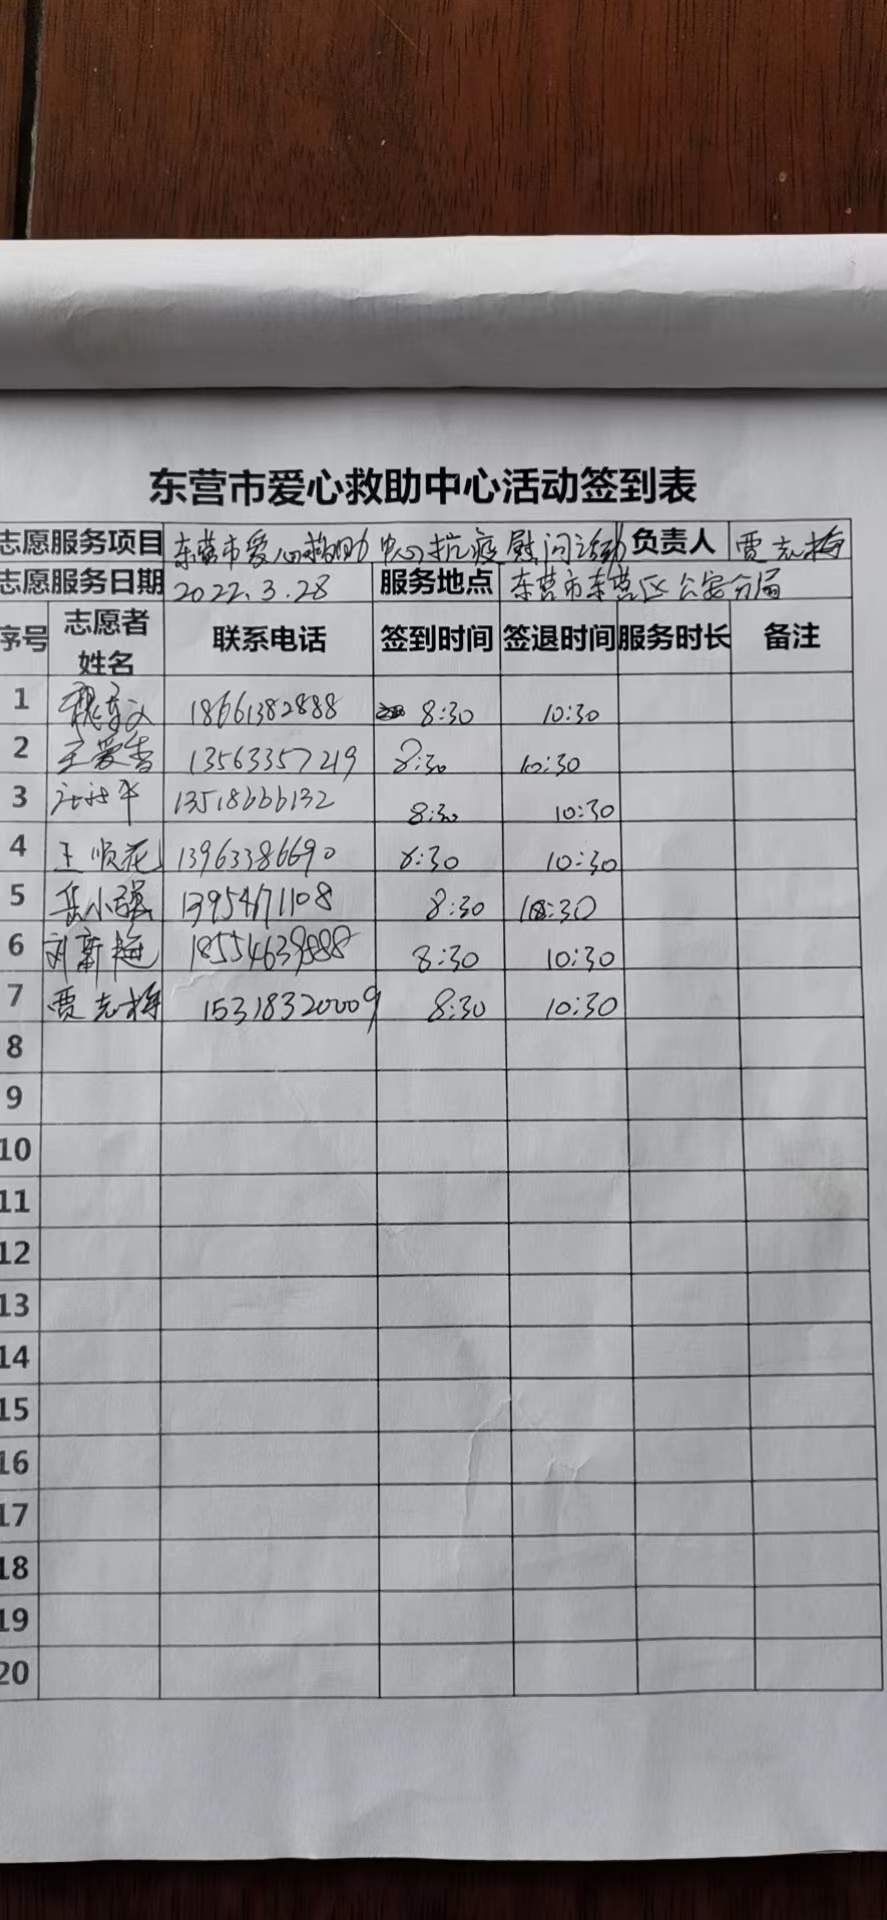 东营市爱心救助中心活动签到表
志愿服务项目 东营市爱心救助中心抗疫慰问活动 负责人 贾志梅
志愿服务日期 2022.3.28 服务地点 东营市东营区公安分局
序号 志愿者姓名 联系电话 签到时间 签退时间 服务时长 备注
1 18661382888 8:30 10:30
2 王爱香 13563357219 8:30 10:30
3 13518666132 8:30 10:30
4 王顺花 13963386690 8:30 10:30
5 岳小强 13954671108 8:30 10:30
6 刘新梅 8:30 10:30
7 贾志梅 15318320009 8:30 10:30
8
9
10
11
12
13
14
15
16
17
18
19
20